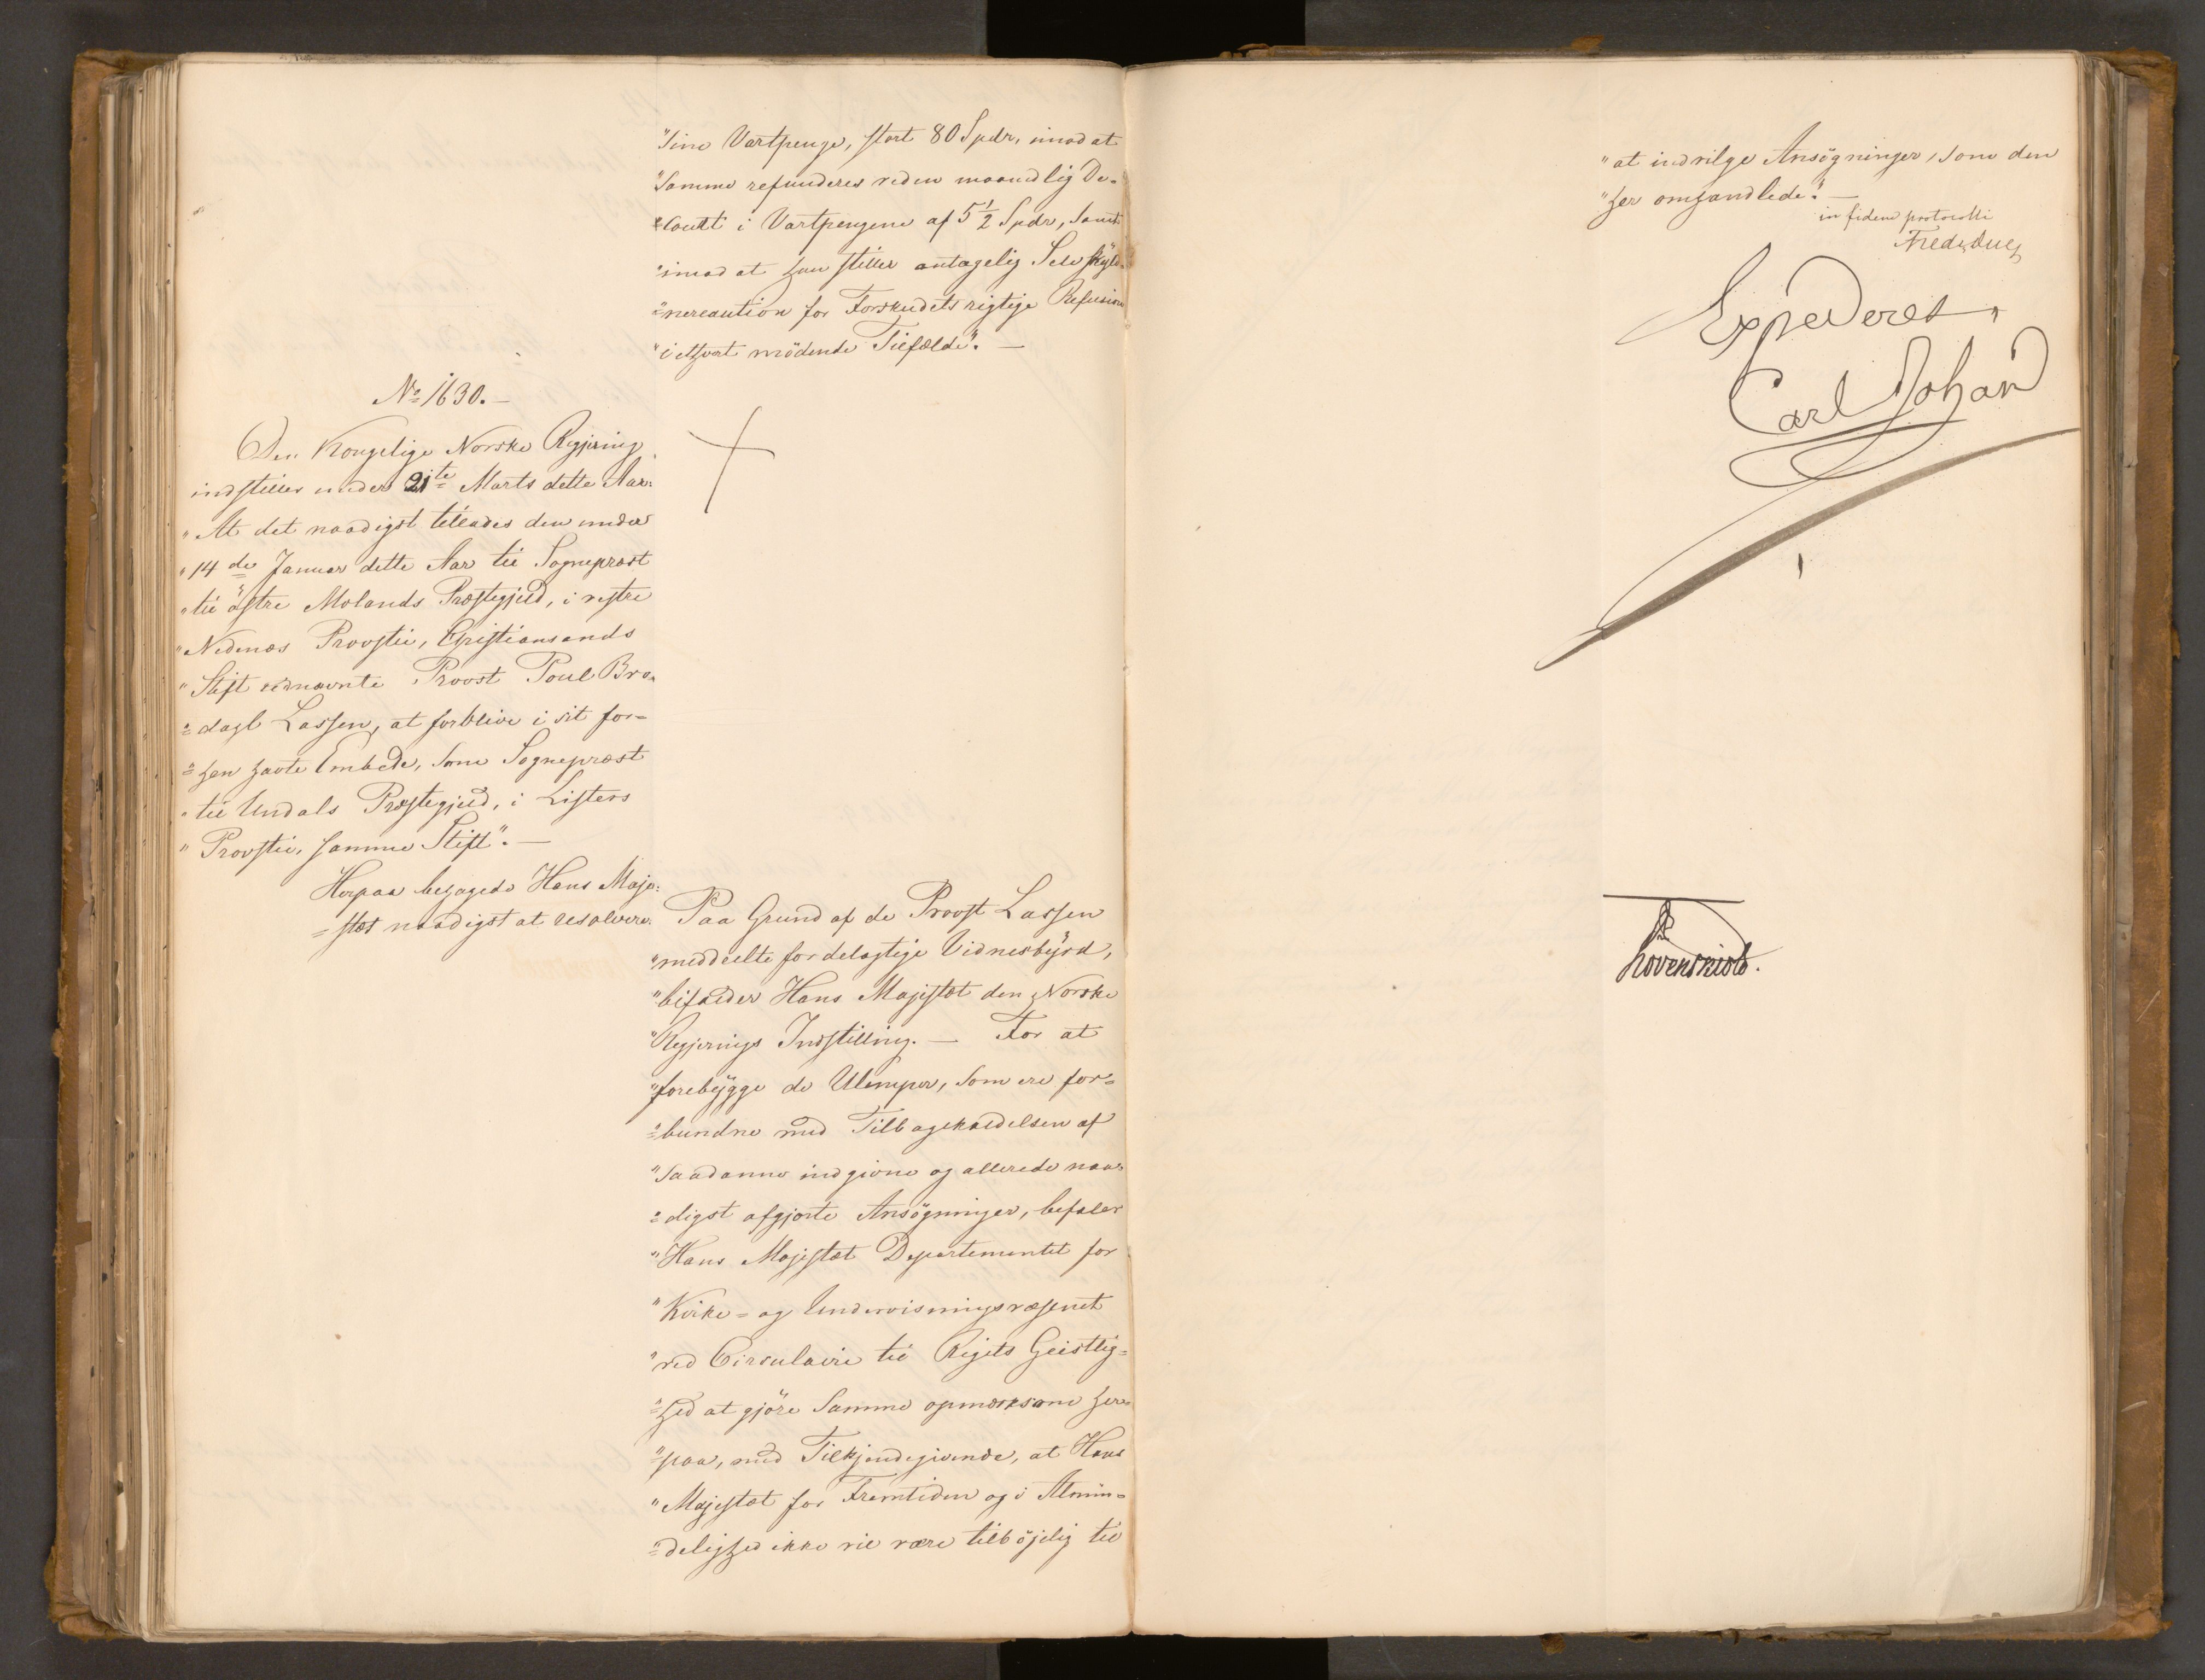 "sine Vartpenge, stort 80 Spdr, imod at
"samme refunderes ved en maanedlig De-
"court i Vartpengene af 5½ Spdr, samt
"imod at han stiller antagelig Selvskyld-
"nercaution for Forskudets rigtige Refusion
"i ethvert mödende Tilfælde". —
No 1630. —
Den Kongelige Norske Regjering
indstiller under 21te Marts dette Aar:
"At det naadigst tillades den under
"14de Januar dette Aar til Sognepræst
"til östre Molands Præstegjeld, i vestre
"Nedenæs Provstie, Christiansands
"Stift udnævnte Provst Poul Bro-
"dahl Lassen, at forblive i sit for-
"hen havte Embede, som Sognepræst
"til Undals Præstegjeld, i Listers
"Provstie, samme Stift". —
Herpaa behagede Hans Maje-
-stæt naadigst at resolvere:
Paa Grund af de Provst Lassen
"meddeelte fordelagtige Vidnesbyrd,
"bifalder Hans Majestæt den Norske
"Regjerings Indstilling. — For at
"forebygge de Ulemper, som ere for-
"bundne med Tilbagekaldelsen af
"saadanne indgivne og allerede naa-
"digst afgjorte Ansögninger, befaler
"Hans Majestæt Departementet for
"Kirke- og Undervisningsvæsenet
"ved Circulaire til Rigets Geistlig-
"hed at gjöre samme opmærksom her-
"paa, med Tilkjendegivende, at Hans
"Majestæt for Fremtiden og i Almin-
"delighed ikke vil være tilböjelig til
"at indvilge Ansögninger, som den
"her omhandlede". —
in fidem protocolli
Fred. Due
Expederes,
Carl Johan
Lövenskiold.